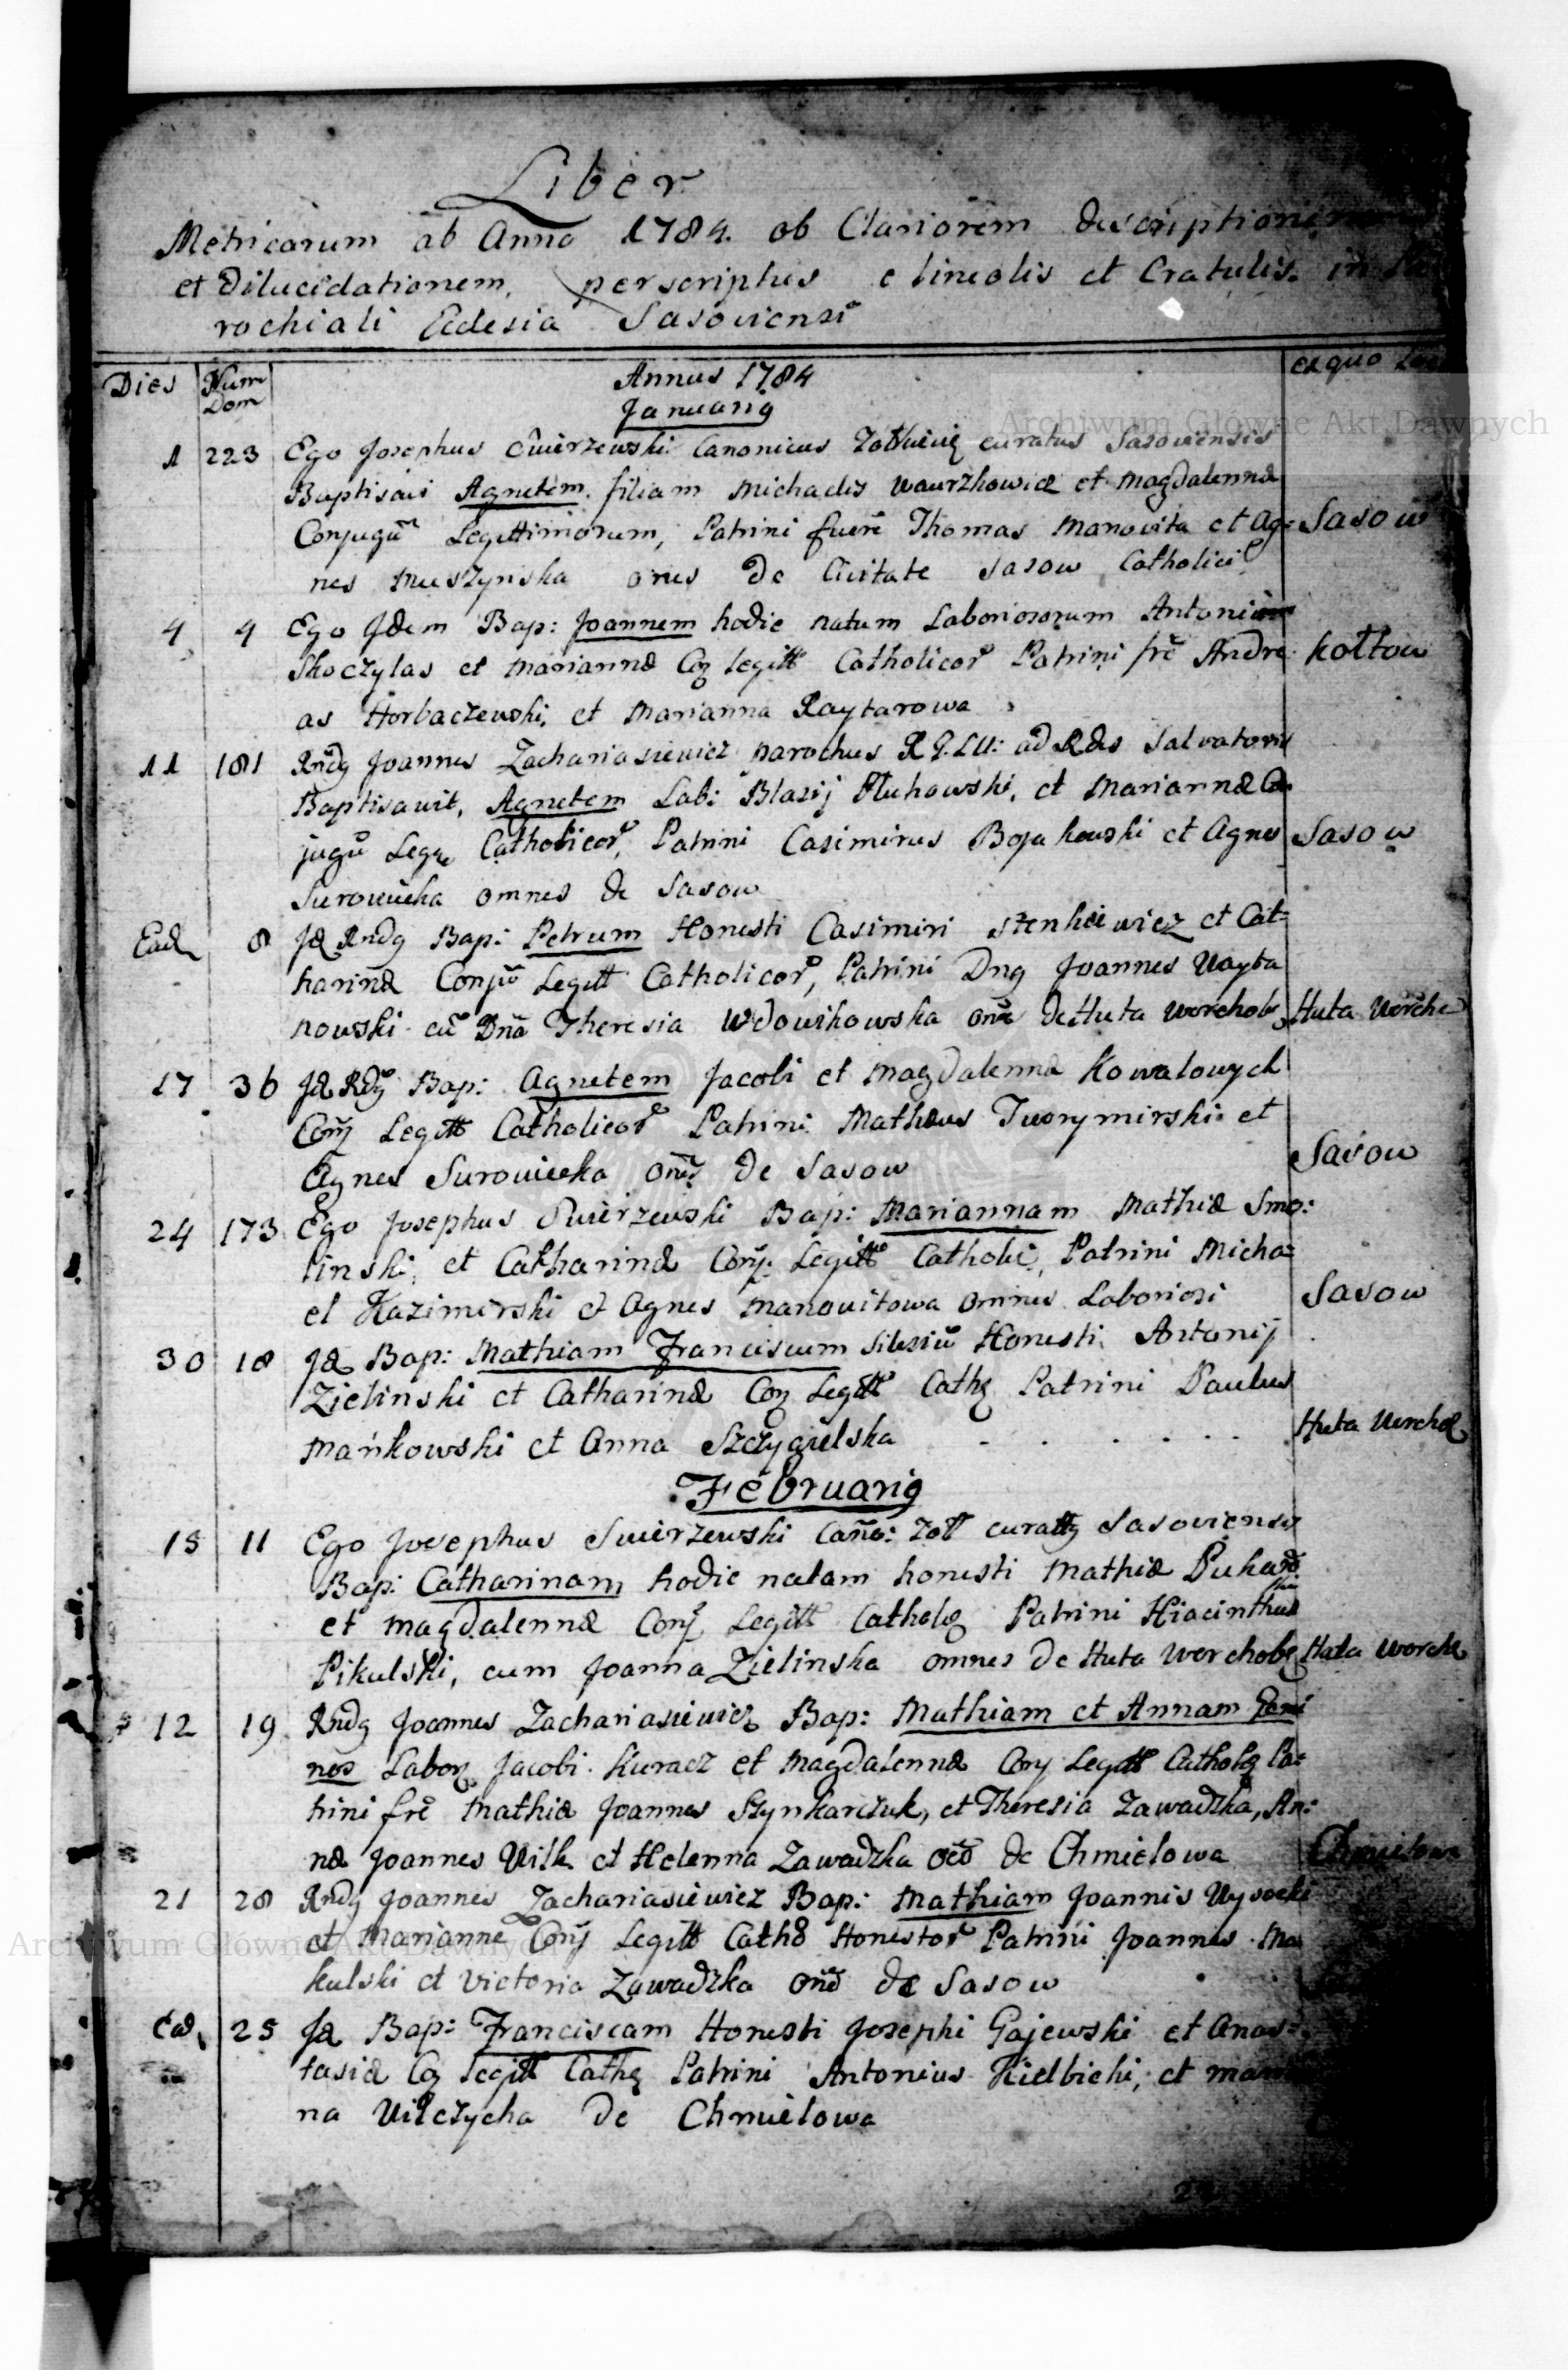 Liber
Metricarum ab Anno 1784. ob Clariorem descriptionem
et Dilucidationem, perscriptus e lineolis et Cratulis. in
rochiali Ecclesia Sasoviensi
Dies Num Dom Annus 1784 ex quo
Januarij
1 223 Ego Josephus Swierzewski Canonicus Zolkievie curatus Sasoviensis
Baptisavi Agnetem filiam Michaelis Wawrzkowicz et Magdalennæ
Conjugū Legittimorum, Patrini fuere Thomas Manovita et Ag= Sasow
nes Muszynska ones de Civitate Sasow Catholici
4 4 Ego Jdem Bap: Joannem hodie natum Laboriosorum Antonii
Skoczylas et Mariannæ Coj legitt Catholicor Patrini fre Andre Koltow
as Horbaczewski, et Marianna Raytarowa
11 181 Rndg Joannes Zachariasiewicz parochus ad Salvatoris
Baptisavit, Agnetem Lab: Blasij Gluhowski, et Mariannæ Co
jugū Legg Catholicor, Patrini Casimirus Bojakowski et Agnes Sasow
Surowiecka omnes de Sasow
Ead 8 Jd Rndg Bap: Petrum Honesti Casimiri Stenkiewicz et Cat=
harinæ Conju Legitt Catholicor, Patrini Dng Joannes Wayta
nowski cū Dna Theresia Wdowikowska one de Huta Werchob Huta Werche
17 36 Jd Rdg Bap: Agnetem Jacobi et Magdalennæ Kowalowych
Conj Legitt Catholicor Patrini Mathæus Tworymirski et
Agnes Surowiecka ones de Sasow Sasow
24 173 Ego Josephus Swierzewski Bap: Mariannam Mathiæ Smo:
linski, et Catharinæ Conj. Legitt Catholi, Patrini Micha=
el Kazimirski et Agnes Manovitowa omnes Laboriosi Sasow
30 18 Jd Bap: Mathiam Franciscum filium Honesti Antonij
Zielinski et Catharinæ Coj Legitt Cathg Patrini Paulus
Mańkowski et Anna Szczygielska . . . . . . Huta Werchob
Februarij
15 11 Ego Josephus Swierzewski Cano: Zoll curatg Sasoviensis
Bap: Catharinam hodie natam honesti Mathiæ Pukar
ski
et Magdalennæ Conj Legitt Cathol Patrini Hiacinthus
Pikulski, cum Joanna Zielinska omnes de Huta Werchob Huta Werch
12 19 Rndg Joannes Zachariasiewicz Bap: Mathiam et Annam Gemi
nos Labor Jacobi Kuracz et Magdalennæ Conj Legitt Cathol Pa=
trini fre Mathiæ Joannes Szynkarczuk, et Theresia Zawadzka, An=
næ Joannes Wilk et Helenna Zawadzka oēs de Chmielowa Chmielowa
21 28 Rndg Joannes Zachariasiewicz Bap: Mathiam Joannis Wysocki
et Marianne Conj Legitt Cath Honestor Patrini Joannes Ma
kulski et Victoria Zawadzka one de Sasow
Ead. 25 Jd Bap: Franciscam Honesti Josephi Gajewski et Anas=
tasiæ Coj legitt Cathg Patrini Antonius Kielbicki, et Marian
na Wilczycha de Chmielowa
Archiwum Główne Akt Dawnych
Archiwum Główne Akt Dawnych